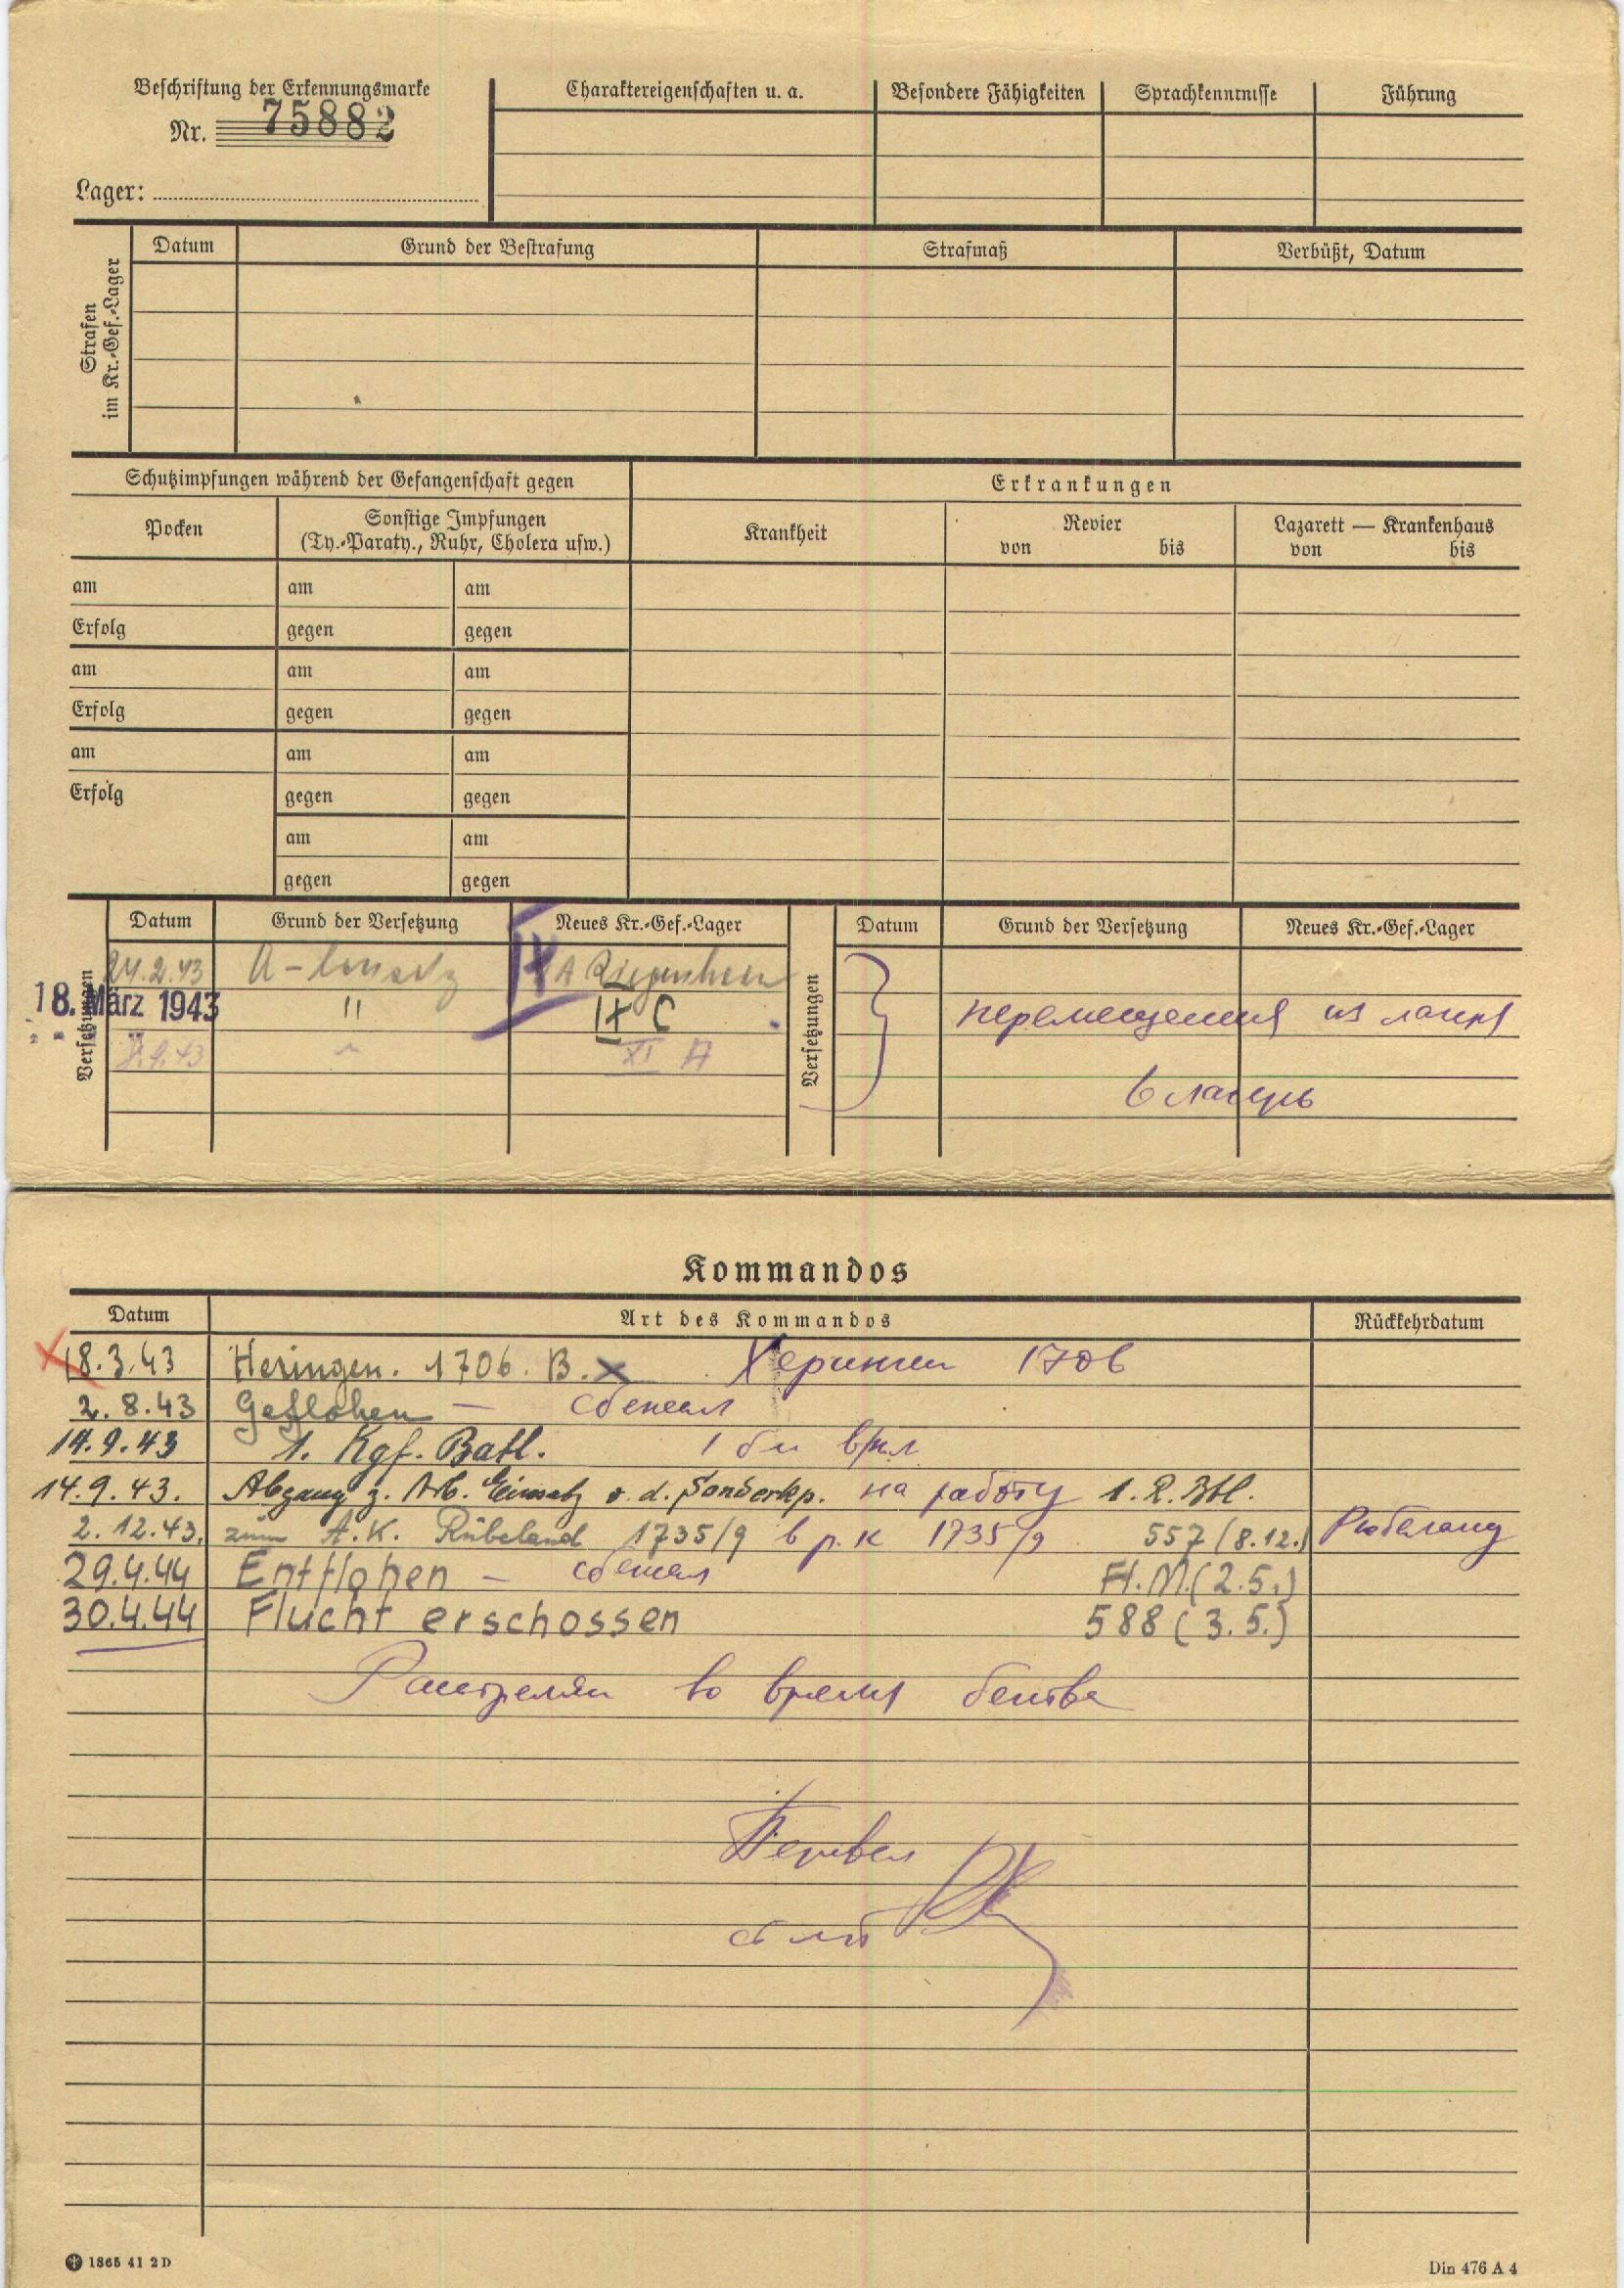 Beschriftung der Erkennungsmarke
Nr. 75882
Lager:
Charaktereigenschaften u. a.
Besondere Fähigkeiten
Sprachkenntnisse
Führung
Strafen im Kr.-Gef.-Lager
Datum
Grund der Bestrafung
Strafmaß
Verbüßt, Datum
Schutzimpfungen während der Gefangenschaft gegen
Erkrankungen
Pocken
Sonstige Impfungen
(Ty.-Paraty., Ruhr, Cholera usw.)
Krankheit
Revier
von bis
Lazarett — Krankenhaus
von bis
am am am
Erfolg gegen gegen
am am am
Erfolg gegen gegen
am am am
Erfolg gegen gegen
am am
gegen gegen
Versetzungen
Datum Grund der Versetzung Neues Kr.-Gef.-Lager
24.2.43 IX A Ziegenhain
18. März 1943 " IX C
XI A
Versetzungen
Datum Grund der Versetzung Neues Kr.-Gef.-Lager
перемещения из лагеря
в лагерь
Kommandos
Datum Art des Kommandos Rückkehrdatum
18.3.43 Heringen. 1706. B. x Херинген 1706
2.8.43 Geflohen — сбежал
14.9.43 1. Kgf. Batl. 1 б-н в/пл
14.9.43. Abgang z. Arb. Einsatz v. d. Sonderkp. на работу 1. R. Btl.
2.12.43. zum A.K. Rübeland 1735/9 в р.к 1735/9 557 (8.12.) Рюбеланд
29.4.44 Entflohen — сбежал Fl.M.(2.5.)
30.4.44 Flucht erschossen 588 (3.5.)
Расстрелян во время бегства
Перевел
1865 41 2 D
Din 476 A 4